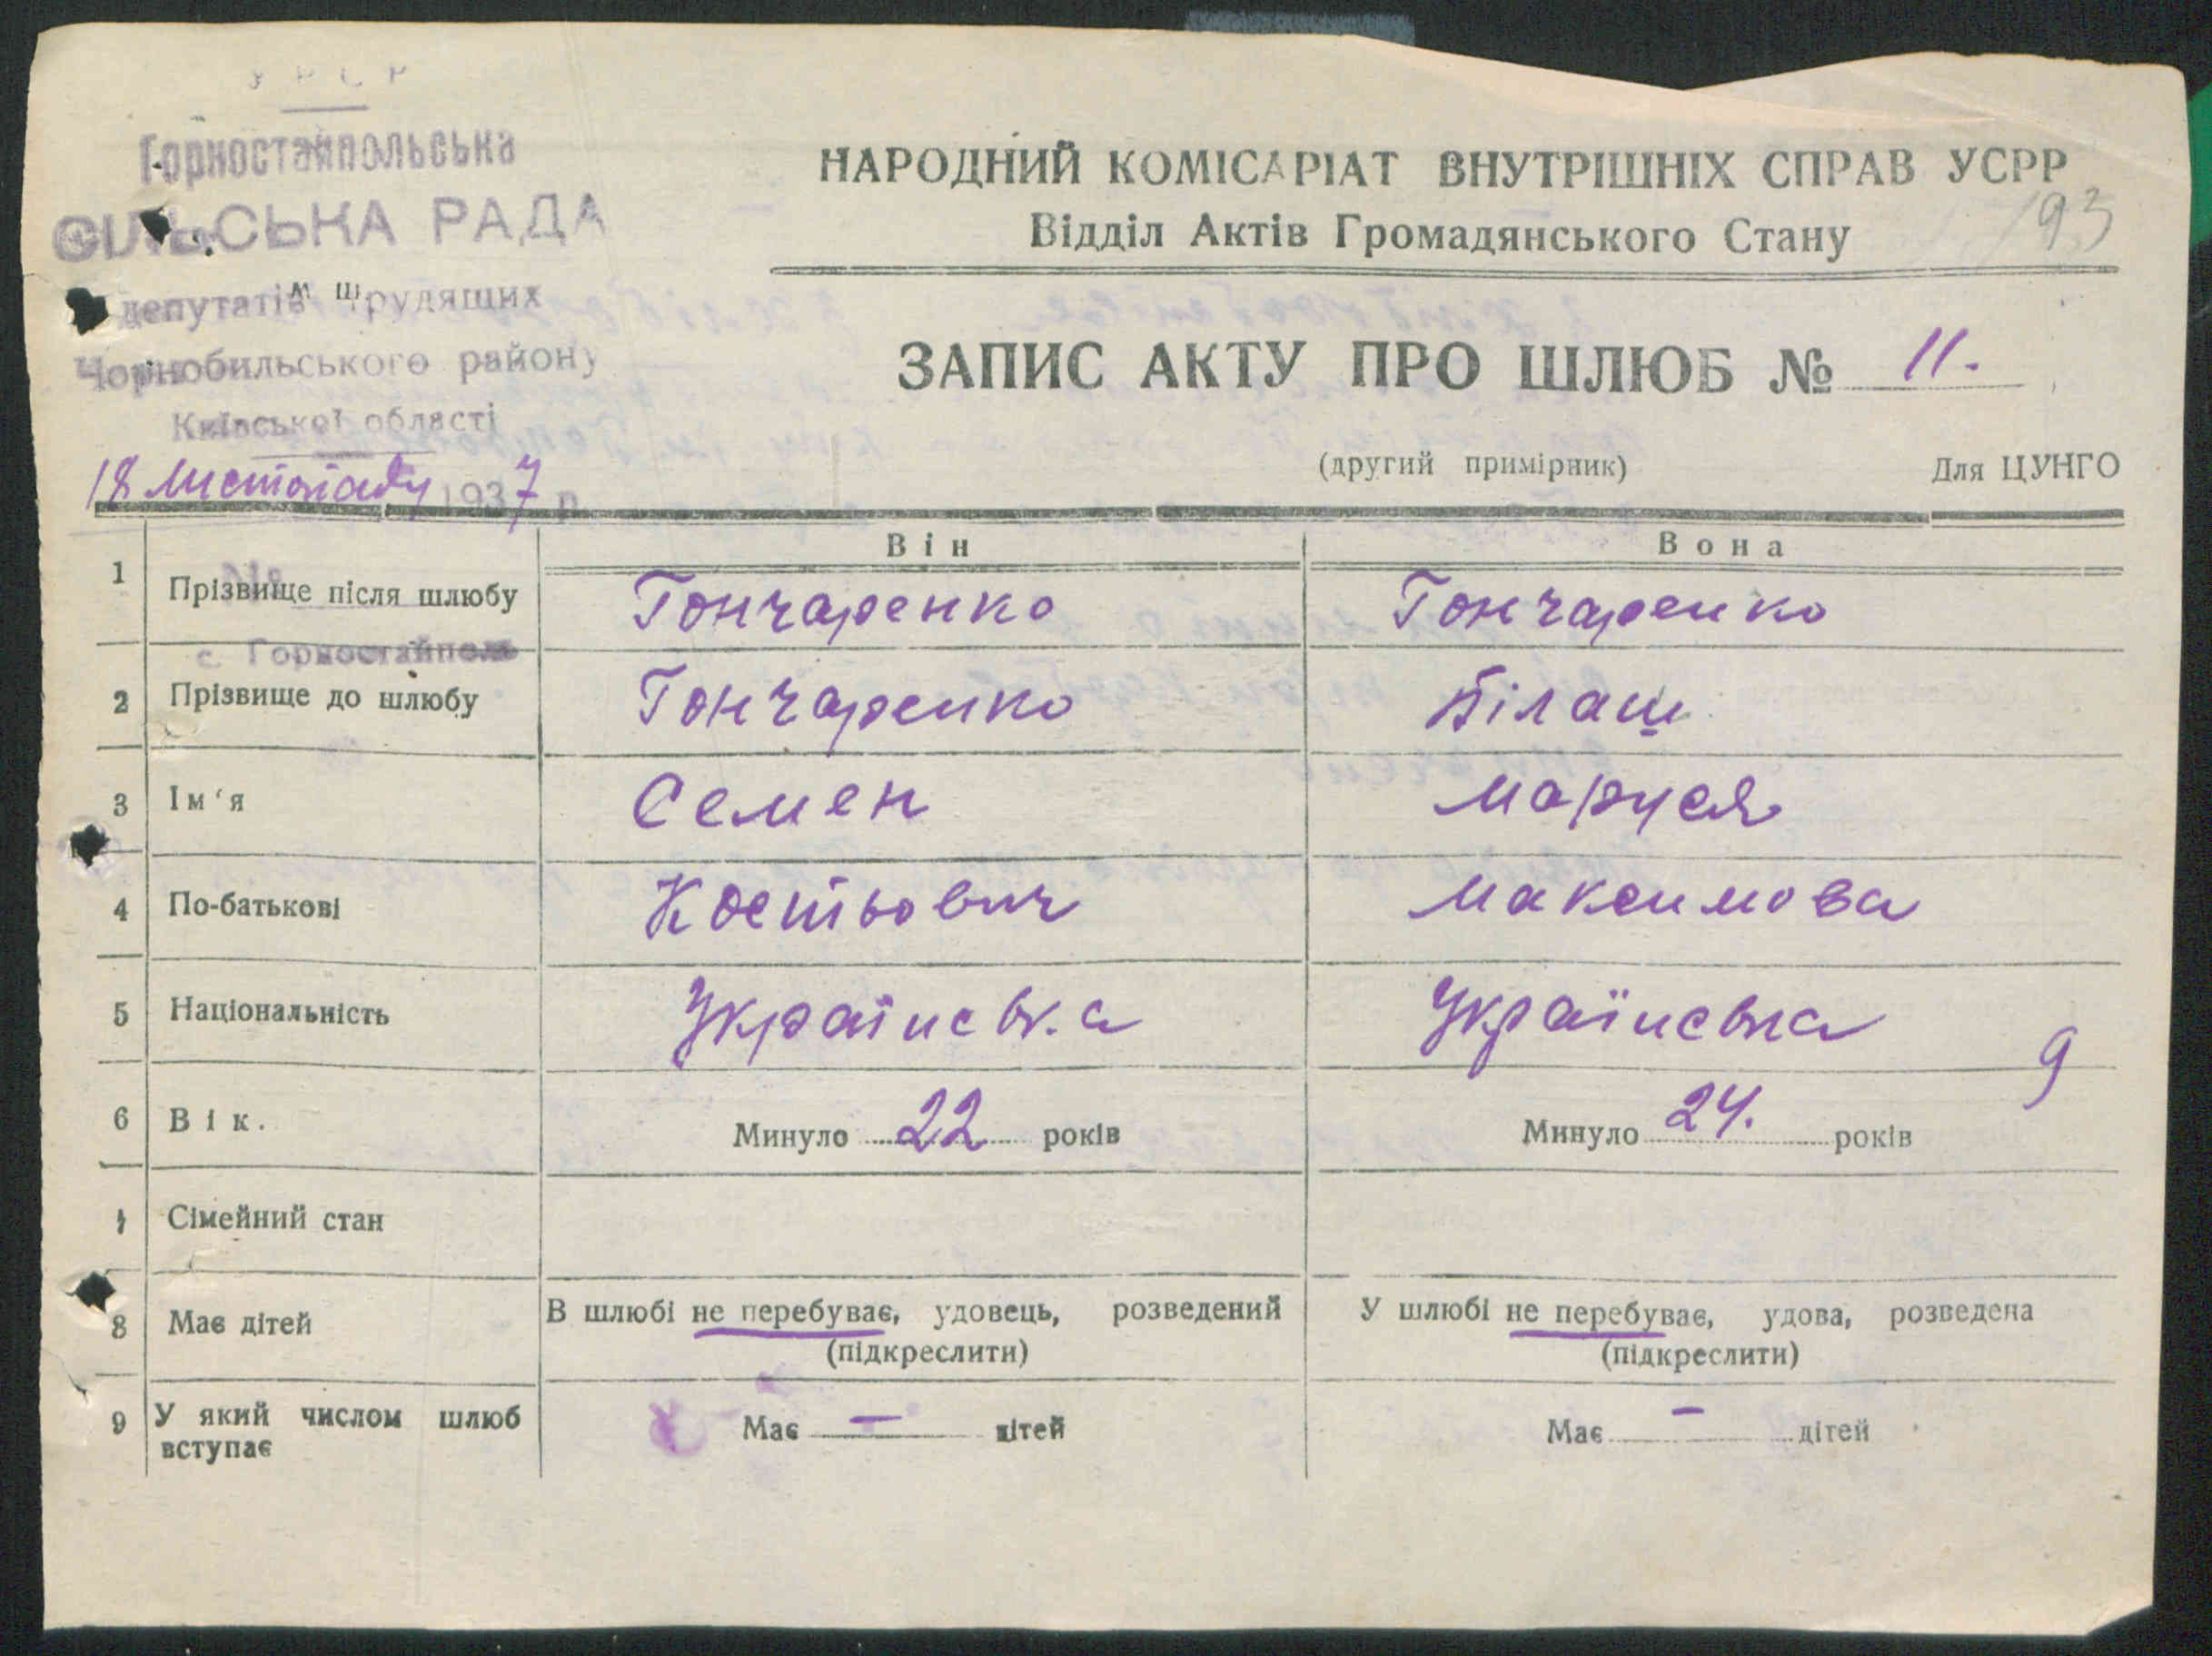 УРСР
Горностайпольська
СІЛЬСЬКА РАДА
депутатів трудящих
Чорнобильського району
Київської області
18 листопаду 1937 р.
с. Горностайполь
НАРОДНИЙ КОМІСАРІАТ ВНУТРІШНІХ СПРАВ УСРР
Відділ Актів Громадянського Стану
193
ЗАПИС АКТУ ПРО ШЛЮБ № 11.
(другий примірник) Для ЦУНГО
Він Вона
1 Прізвище після шлюбу Гончаренко Гончаренко
2 Прізвище до шлюбу Гончаренко Білаш
3 Ім‘я Семен Маруся
4 По-батькові Костьович Максимова
5 Національність Українська Українська
9
6 Вік. Минуло 22 років Минуло 24. років
7 Сімейний стан
8 Має дітей В шлюбі не перебуває, удовець, розведений У шлюбі не перебуває, удова, розведена
(підкреслити) (підкреслити)
9 У який числом шлюб Має — дітей Має — дітей
вступає